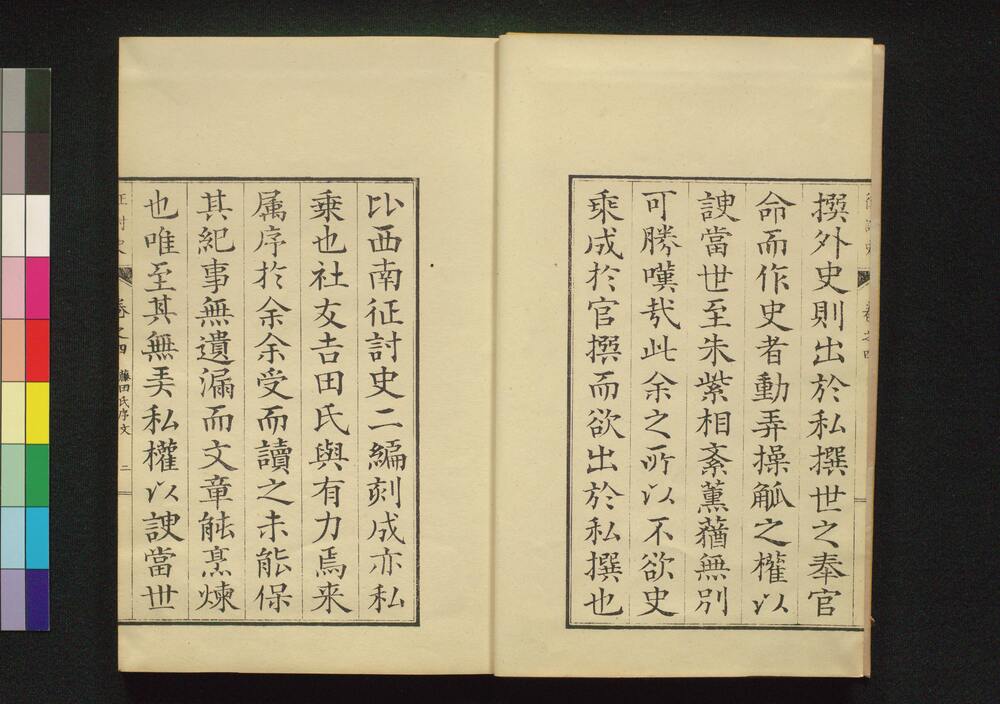 撰外史則出於私撰世之奉官
命而作史者動弄操觚之權以
諛當世至朱紫相紊薰蕕無別
可勝嘆哉此余之所以不欲史
乘成於官撰而欲出於私撰也
卷之四
比西南征討史二編刻成亦私
乗也社友吉田氏與有力焉来
属序於余余受而讀之未能保
其紀事無遺漏而文章能烹煉
也唯至其無弄私權以諛當世
征討史
卷之四
藤田氏序文
二